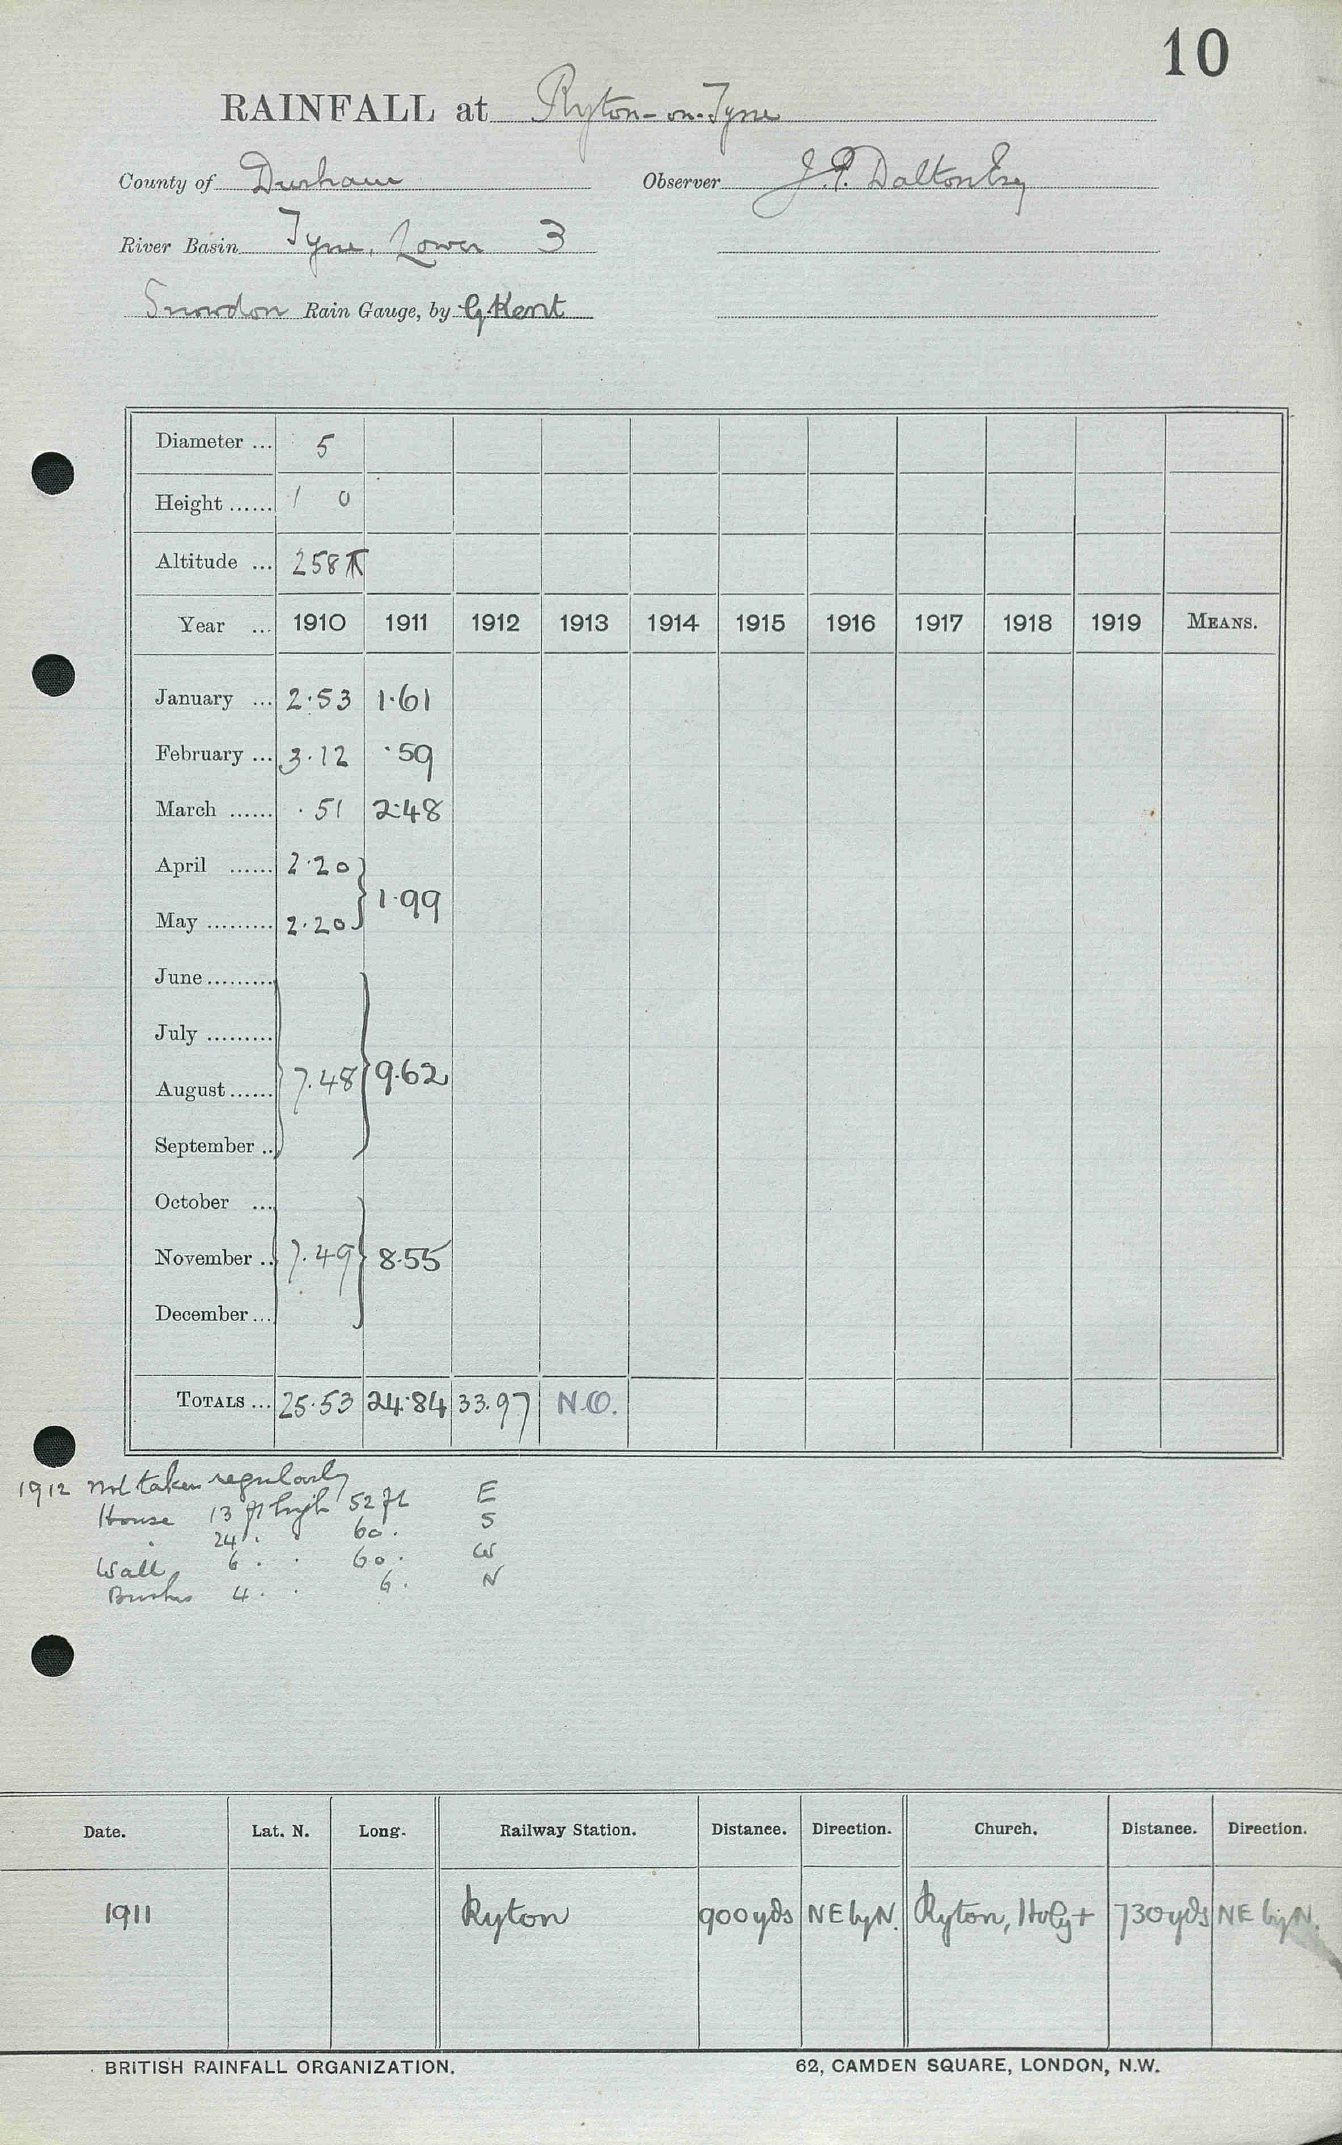 10
RAINFALL at Ryton-on-Tyne
County of Durham Observer J. P. Dalton Esq
River Basin Tyne, Lower 3
Snowdon Rain Gauge, by G. Kent
Diameter ... 5
Height ...... 1 0
Altitude ... 258
Year ... 1910 1911 1912 1913 1914 1915 1916 1917 1918 1919 MEANS.
January ... 2.53 1.61
February ... 3.12 .59
March ...... .51 2.48
April ...... 2.20
1.99
May ......... 2.20
June .........
July .........
August ...... 7.48 9.62
September ..
October ...
November .. 7.49 8.55
December ...
TOTALS ... 25.53 24.84 33.97 N.O.
1912 not taken regularly
House 13 ft high 52 ft E
" 24 " " 60 " S
Wall 6 " " 60 " W
Bushes 4 " " 6 " N
Date. Lat. N. Long. Railway Station. Distance. Direction. Church. Distance. Direction.
1911 Ryton 900 yds NE by N. Ryton, Holy + 730 yds NE by N.
BRITISH RAINFALL ORGANIZATION. 62, CAMDEN SQUARE, LONDON, N.W.